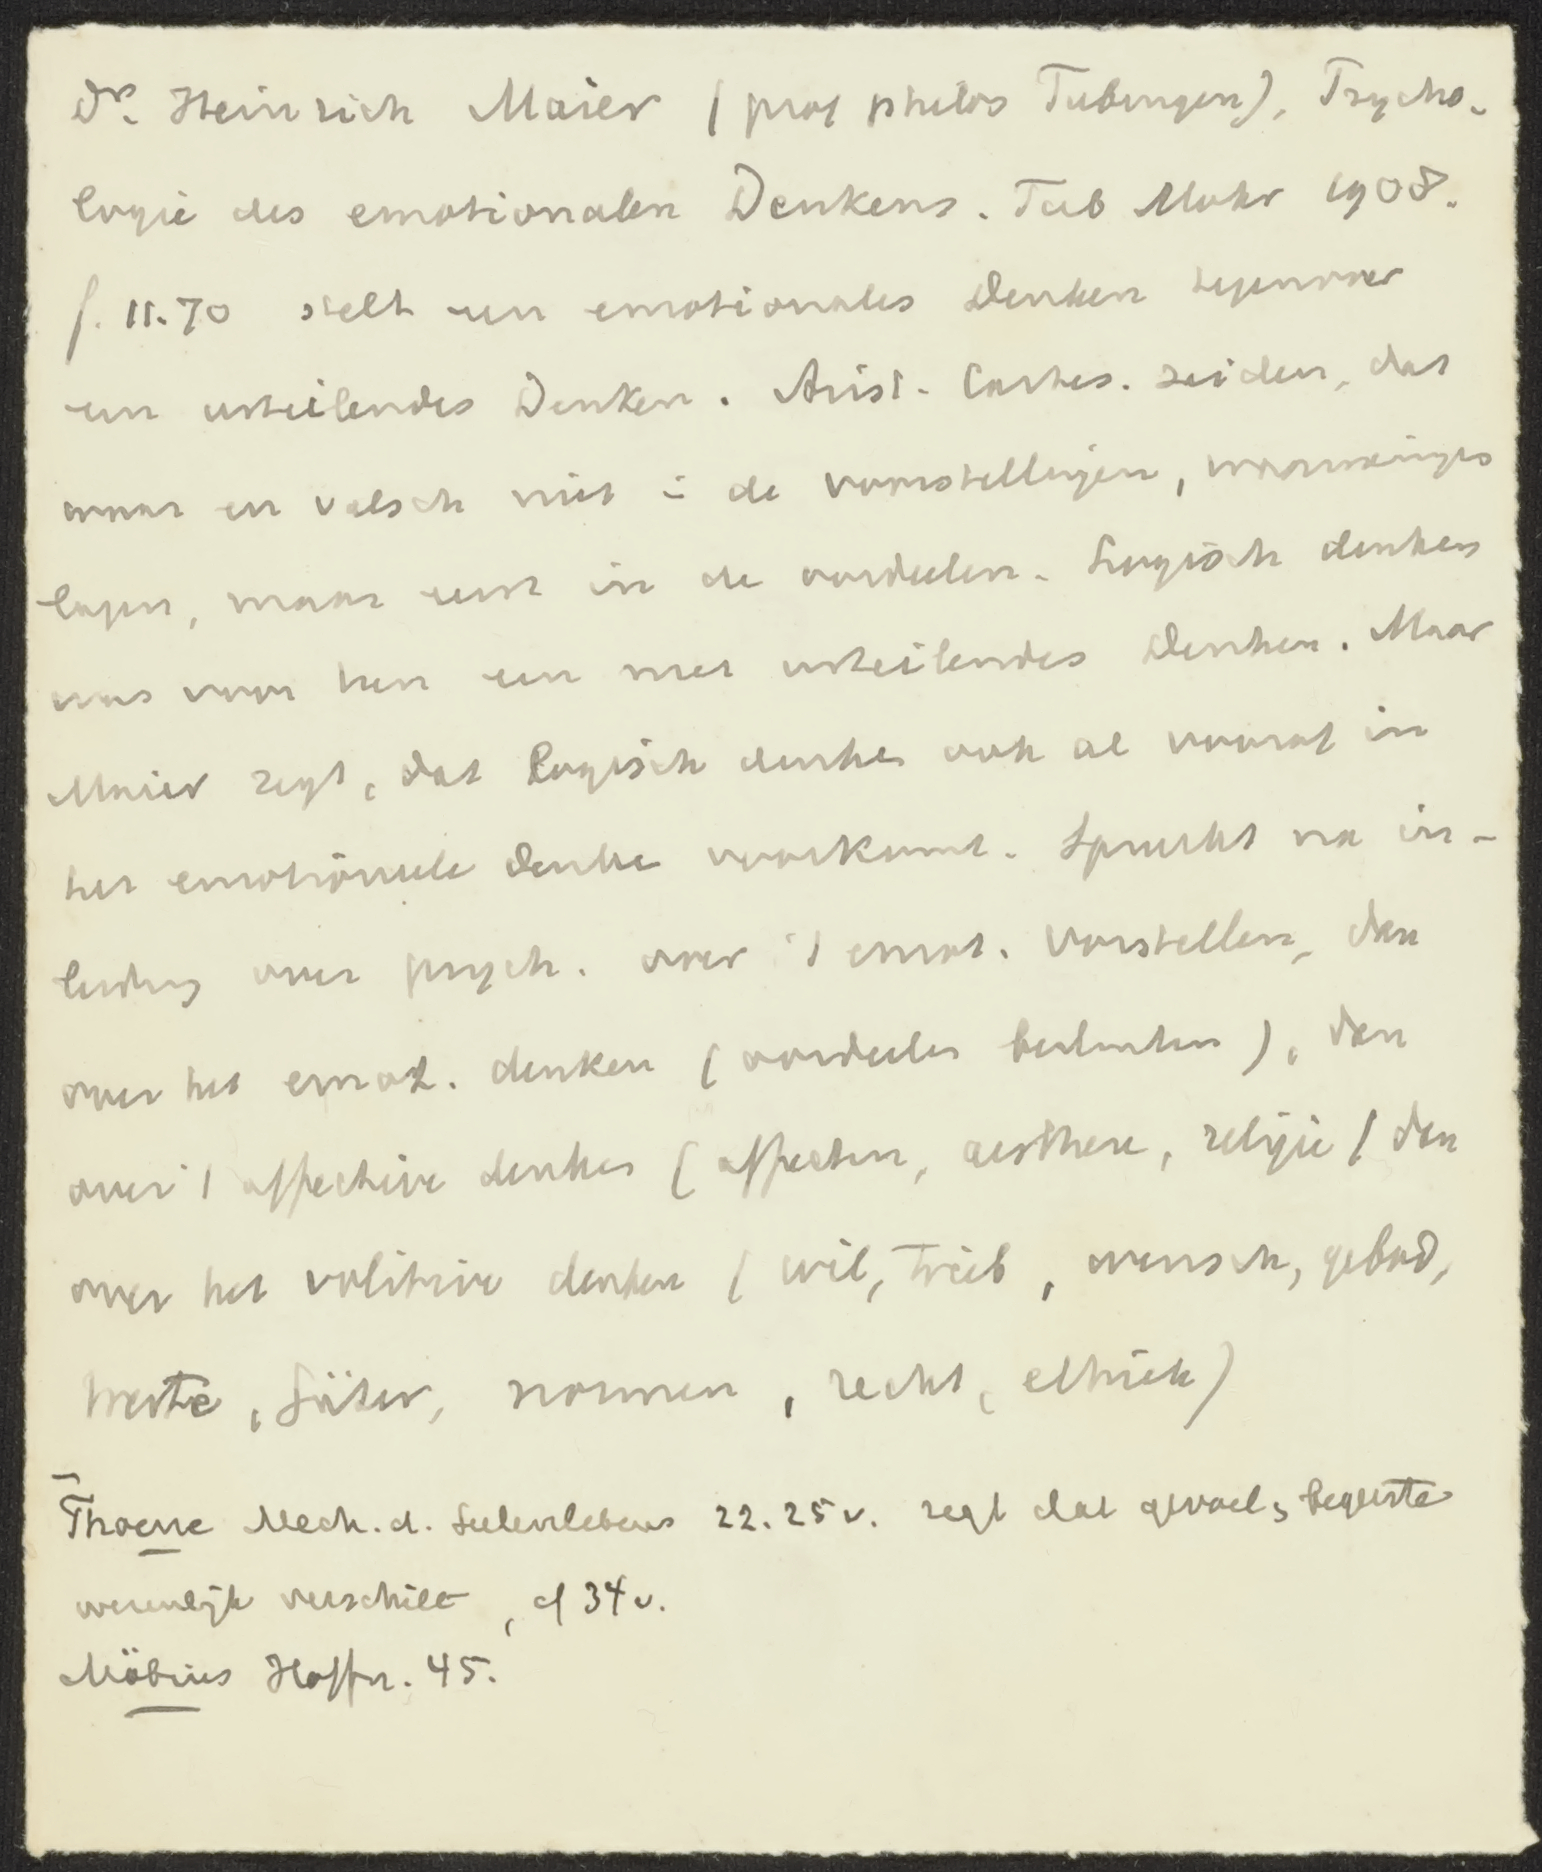 Dr. Heinrich Maier (prof philos Tubingen), Psycho-
logie des emotionalen Denkens. Tub Mohr 1908.
f. 11.70 stelt een emotionales Denken tegenover
een urteilendes Denken. Arist. Cartes. zeiden, dat
waar en valsch niet in de voorstellingen, waarnemingen
lagen, maar eerst in de oordeelen. Logisch denken
was voor hen een met urteilendes Denken. Maar
Maier zegt, dat logisch denken ook al vooraf in
het emotioneele denken voorkomt. Spreekt na in-
leiding over psych. over 't emot. Vorstellen, dan
over het emot. denken (oordeelen besluiten), dan
over 't affectieve denken (affecten, aesthese, religie) dan
over het volitieve denken (wil, Trieb, wensch, gebod,
Werte, Güter, normen, recht, ethiek)
Mech. d. Seelenlebens 22. 25 v. zegt dat gevoel, begeerte
wezenlijk verschilt, cf 34 v.
Möbius Hoffn. 45.